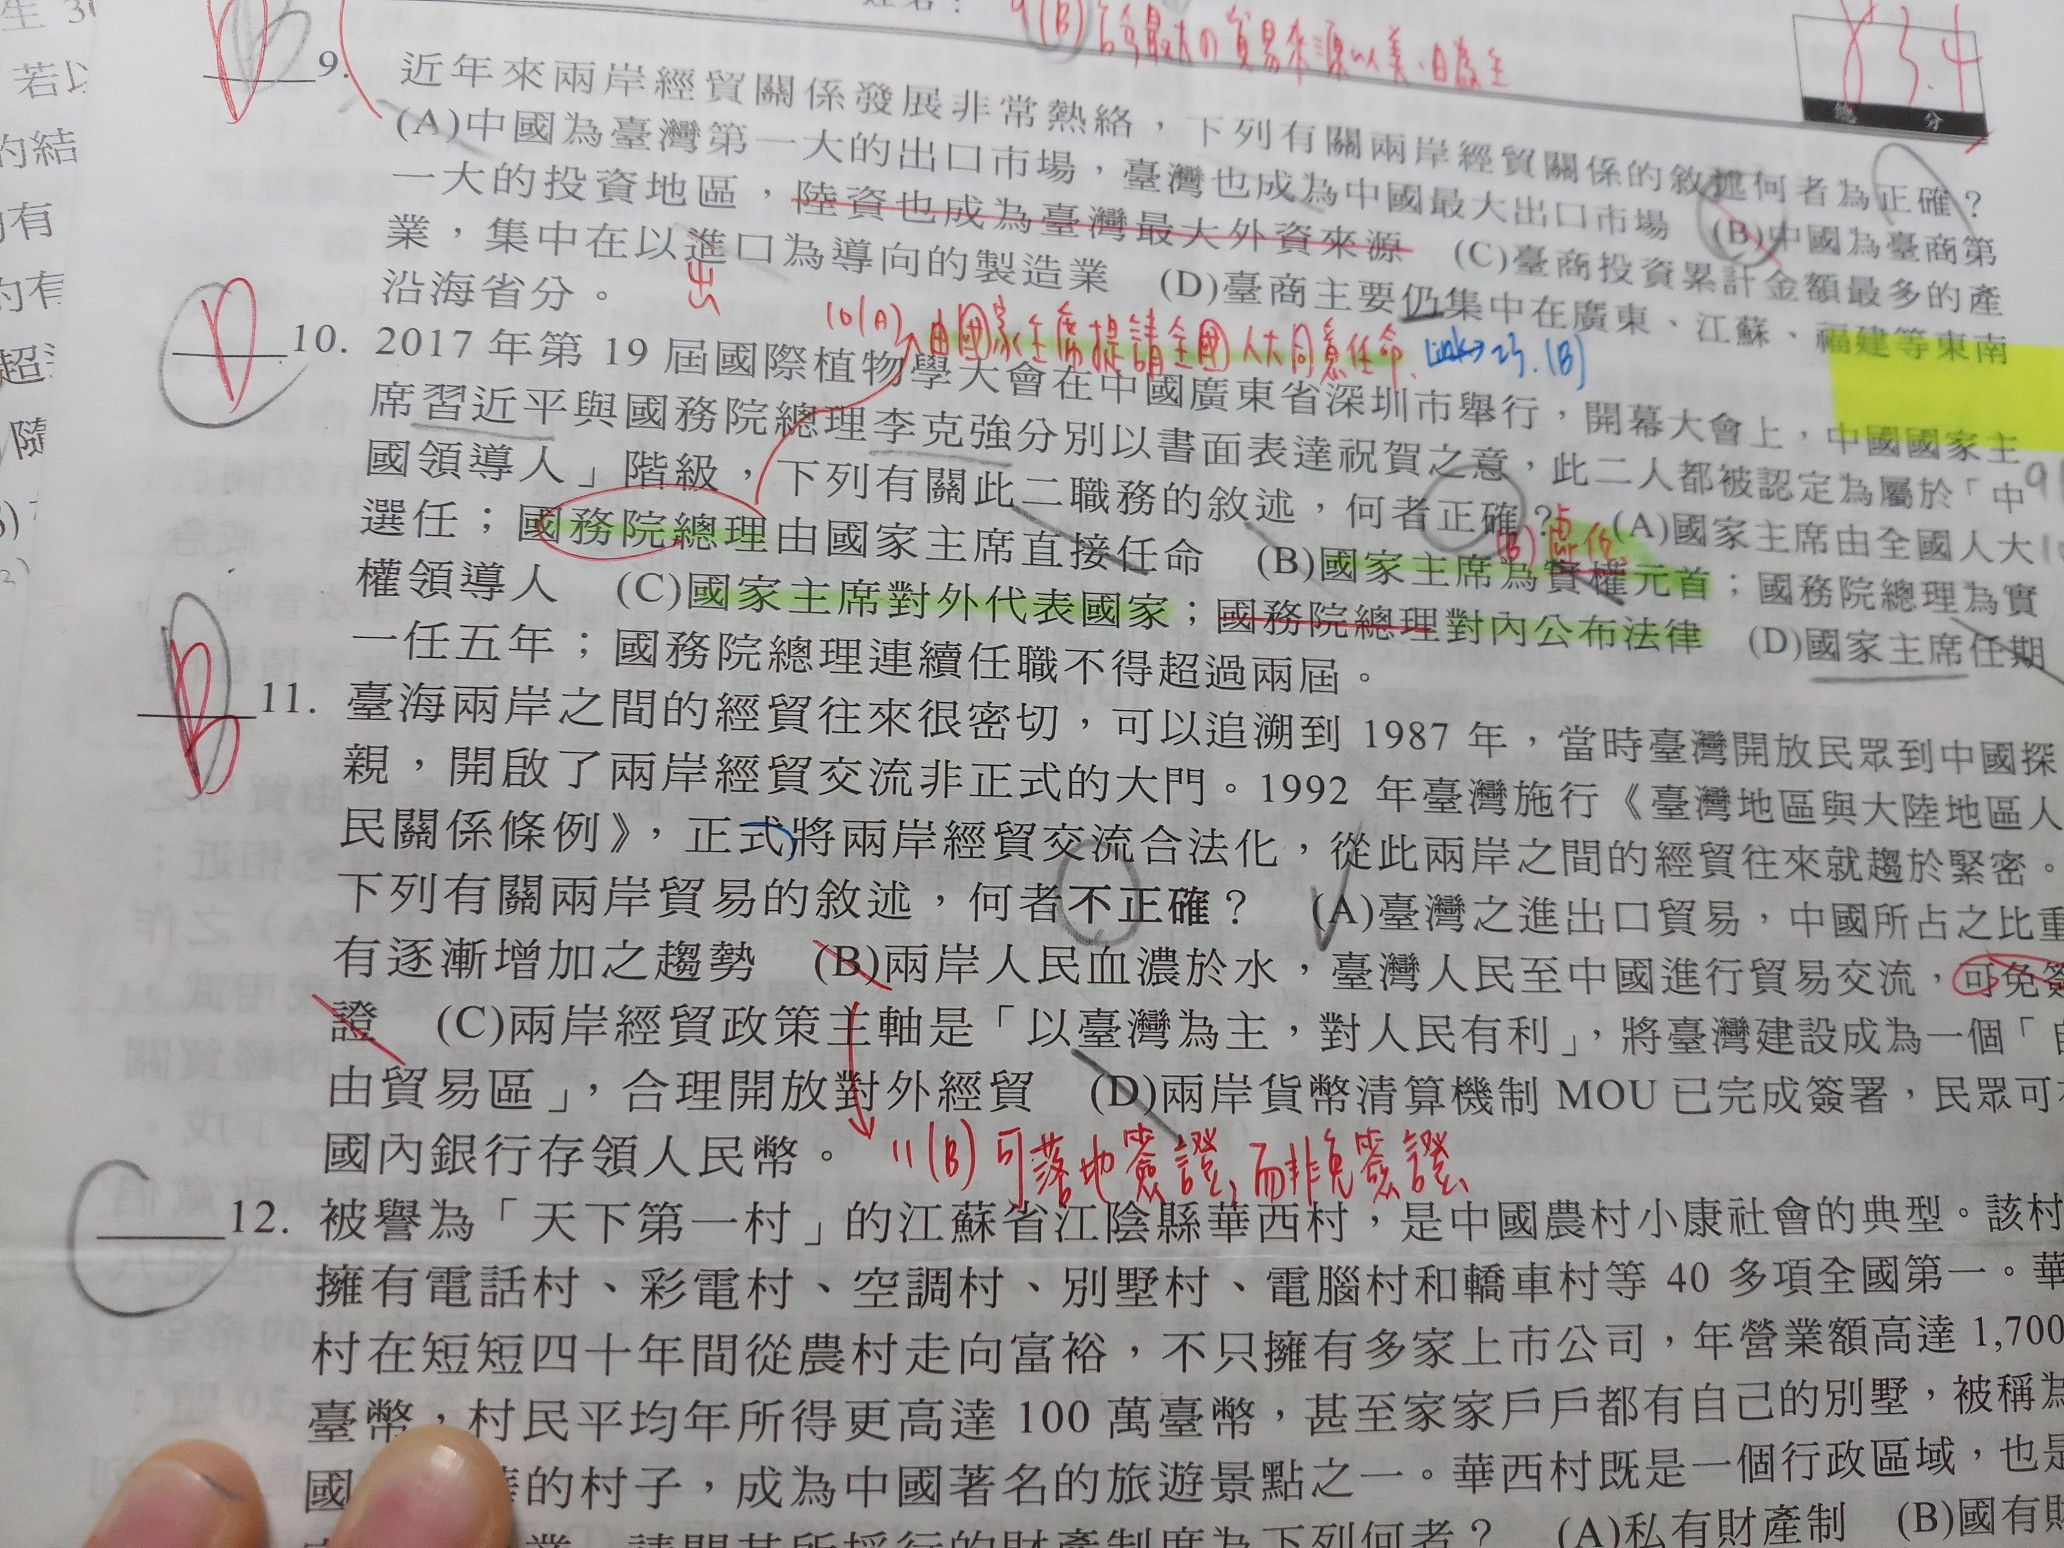 生 3
姓名：
9(B)台灣最大的貿易來源以美、日為主
83.4
總 分
若以
的結
超
隨
D 9. 近年來兩岸經貿關係發展非常熱絡，下列有關兩岸經貿關係的敘述何者為正確？
(A)中國為臺灣第一大的出口市場，臺灣也成為中國最大出口市場 (B)中國為臺商第
一大的投資地區，陸資也成為臺灣最大外資來源 (C)臺商投資累計金額最多的產
業，集中在以進口為導向的製造業 (D)臺商主要仍集中在廣東、江蘇、福建等東南
出
沿海省分。
10(A) 由國家主席提請全國人大同意任命. Link→25.(B)
D 10. 2017 年第 19 屆國際植物學大會在中國廣東省深圳市舉行，開幕大會上，中國國家主
席習近平與國務院總理李克強分別以書面表達祝賀之意，此二人都被認定為屬於「中
國領導人」階級，下列有關此二職務的敘述，何者正確？ (A)國家主席由全國人大
選任；國務院總理由國家主席直接任命 (B)國家主席為實權元首；國務院總理為實
(B)虛位
權領導人 (C)國家主席對外代表國家；國務院總理對內公布法律 (D)國家主席任期
一任五年；國務院總理連續任職不得超過兩屆。
B 11. 臺海兩岸之間的經貿往來很密切，可以追溯到 1987 年，當時臺灣開放民眾到中國探
親，開啟了兩岸經貿交流非正式的大門。1992 年臺灣施行《臺灣地區與大陸地區人
民關係條例》，正式將兩岸經貿交流合法化，從此兩岸之間的經貿往來就趨於緊密。
下列有關兩岸貿易的敘述，何者不正確？ (A)臺灣之進出口貿易，中國所占之比重
有逐漸增加之趨勢 (B)兩岸人民血濃於水，臺灣人民至中國進行貿易交流，可免簽
證 (C)兩岸經貿政策主軸是「以臺灣為主，對人民有利」，將臺灣建設成為一個「自
由貿易區」，合理開放對外經貿 (D)兩岸貨幣清算機制 MOU 已完成簽署，民眾可在
國內銀行存領人民幣。
11(B) 可落地簽證，而非免簽證
C 12. 被譽為「天下第一村」的江蘇省江陰縣華西村，是中國農村小康社會的典型。該村
擁有電話村、彩電村、空調村、別墅村、電腦村和轎車村等 40 多項全國第一。華
村在短短四十年間從農村走向富裕，不只擁有多家上市公司，年營業額高達 1,700
臺幣，村民平均年所得更高達 100 萬臺幣，甚至家家戶戶都有自己的別墅，被稱為
國 的村子，成為中國著名的旅遊景點之一。華西村既是一個行政區域，也是
業，請問其所採行的財產制度為下列何者？ (A)私有財產制 (B)國有財